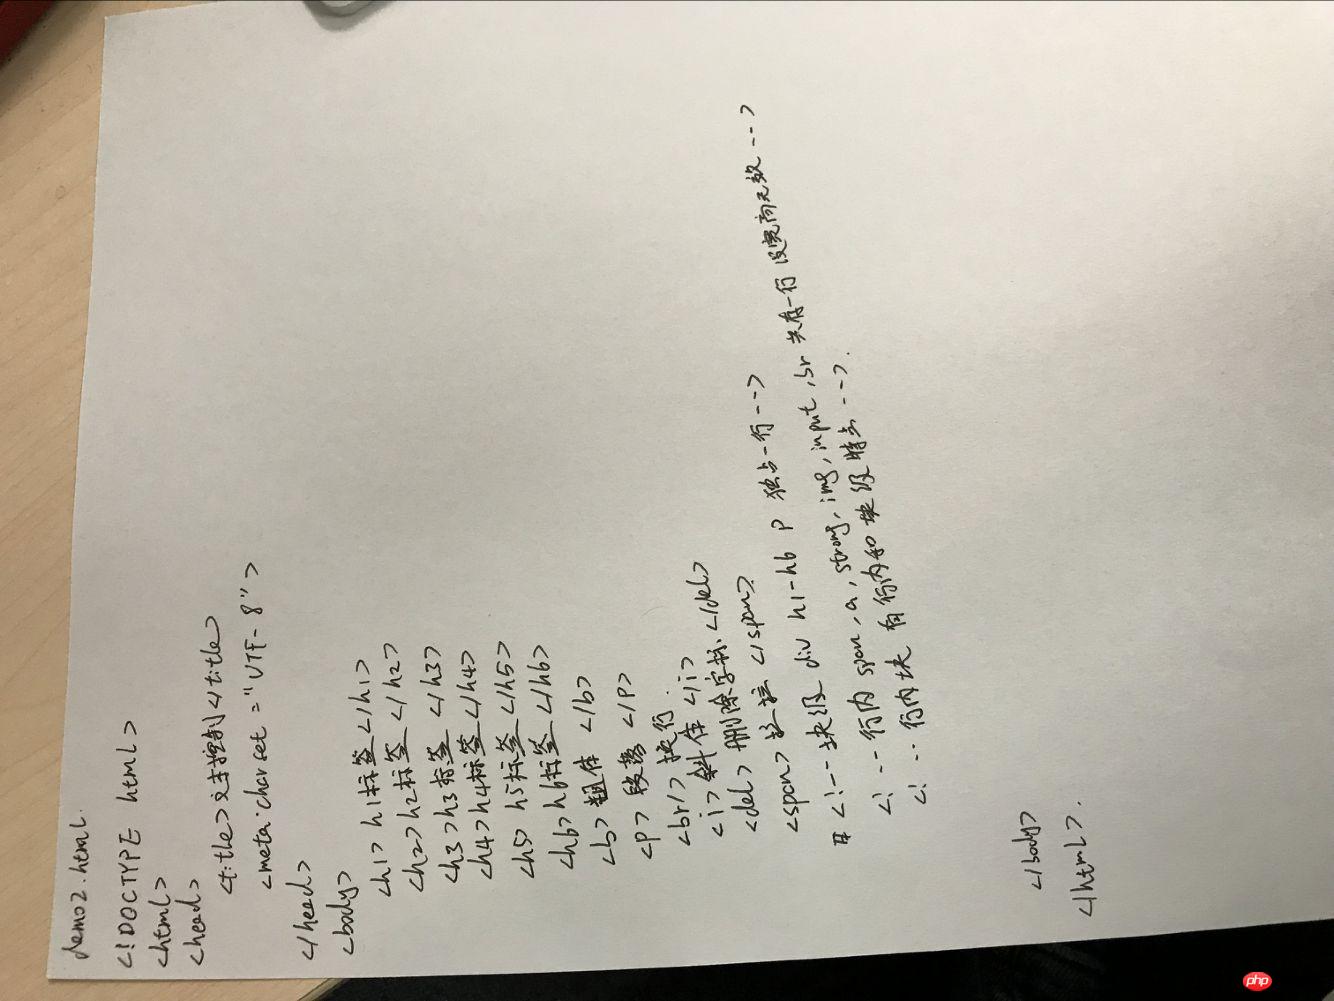 demo2.html.
<!DOCTYPE html>
<html>
<head>
<title>主控制</title>
<meta charset="UTF-8">
</head>
<body>
<h1>h1标签</h1>
<h2>h2标签</h2>
<h3>h3标签</h3>
<h4>h4标签</h4>
<h5>h5标签</h5>
<h6>h6标签</h6>
<b>粗体</b>
<p>段落</p>
<br/>换行
<i>斜体</i>
<del>删除字体</del>
<span></span>
<!--块级 div h1-h6 p 独占一行-->
<!--行内 span, a, strong, img, input, br 共有一行 设宽高无效-->
<!--行内块 有行内和块级特点-->.
</body>
</html>.
php